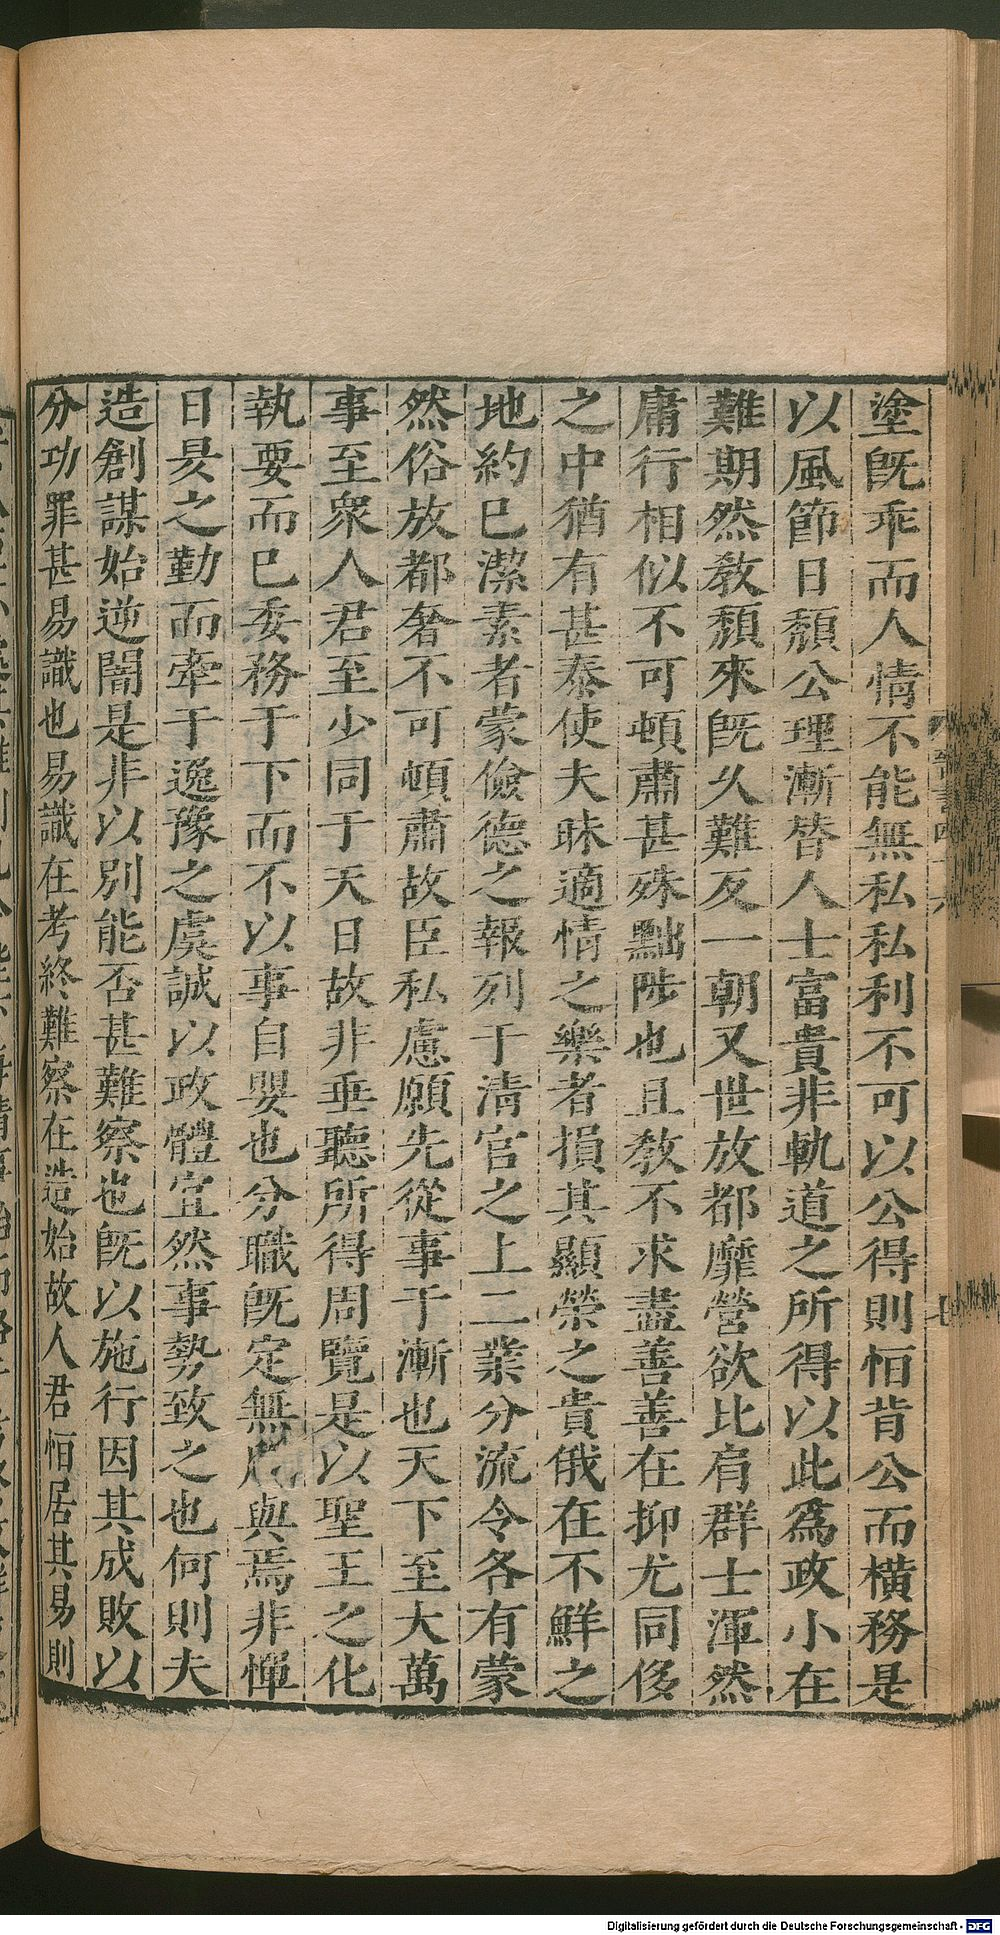 塗旣乖而人情不能無私私利不可以公得則恒背公而橫務是
以風節日頽公理漸替人士富貴非軌道之所得以此爲政小在
難期然敎頽來旣久難反一朝又世放都靡營欲比肩群士渾然
庸行相似不可頓肅甚殊黜陟也且敎不求盡善善在抑尤同侈
之中猶有甚泰使夫昧適情之樂者損其顯榮之貴俄在不鮮之
地約已潔素者蒙儉德之報列于淸官之上二業分流令各有蒙
然俗放都奢不可頓肅故臣私慮願先從事于漸也天下至大萬
事至衆人君至少同于天日故非垂聽所得周覽是以聖王之化
執要而已委務于下而不以事自嬰也分職旣定無所與焉非憚
日昃之勤而牽于逸豫之虞誠以政體宜然事勢致之也何則夫
造創謀始逆闇是非以別能否甚難察也旣以施行因其成敗以
分功罪甚易識也易識在考終難察在造始故人君恒居其易則
晉書四十六
七
Digitalisierung gefördert durch die Deutsche Forschungsgemeinschaft - DFG